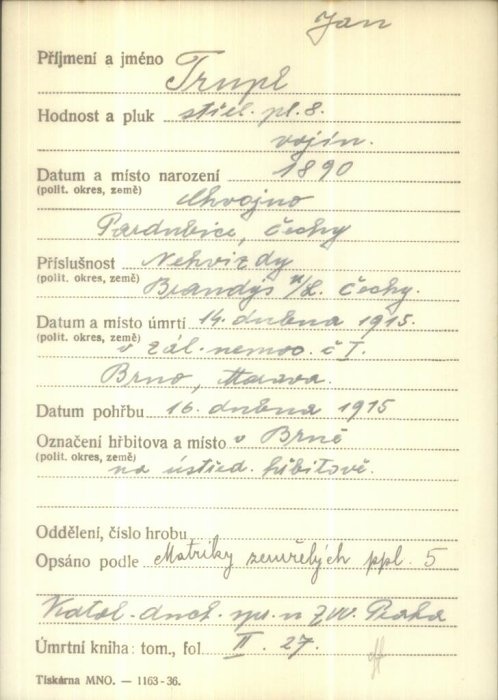 Jan
Příjmení a jméno Trupl
Hodnost a pluk střel. pl. 8.
vojín.
Datum a místo narození 1890
(polit. okres, země) Chvojno
Pardubice, Čechy
Příslušnost Nehvizdy
(polit. okres, země) Brandýs n/L. Čechy.
Datum a místo úmrtí 14. dubna 1915.
(polit. okres, země) v zál. nemoc. č I.
Brno, Morava.
Datum pohřbu 16. dubna 1915
Označení hřbitova a místo v Brně
(polit. okres, země) na ústřed. hřbitově.
Oddělení, číslo hrobu
Opsáno podle Matriky zemřelých ppl. 5
Katol. duch. spr. n ZVV. Praha
Úmrtní kniha: tom., fol. II. 27.
Tiskárna MNO. — 1163-36.